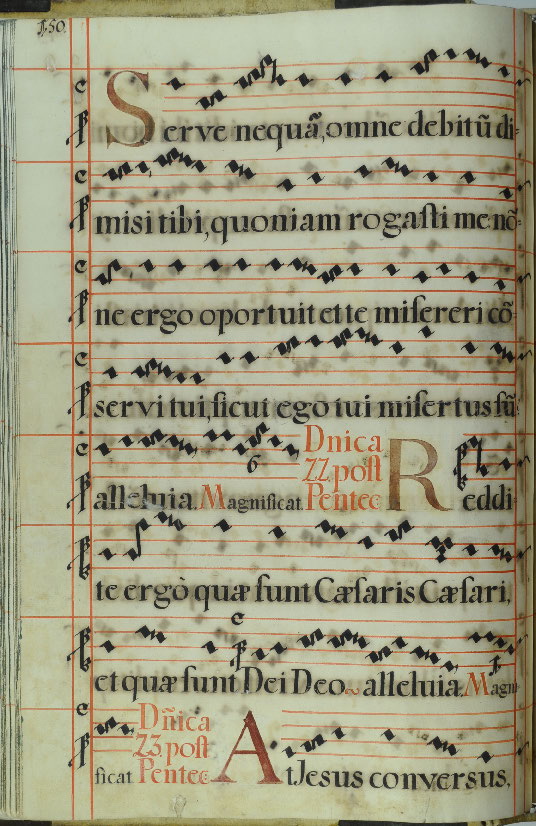 150.
Serve nequã, omne debitũ di=
misi tibi, quoniam rogaſti me: nõ=
ne ergo oportuit et te miſereri cõ
servi tui, ſicut ego tui miſertus ſũ
alleluia. Magnificat. Dnica 22. poſt Pentec Reddi
6
te ergò quæ ſunt Cæſaris Cæſari,
et quæ ſunt Dei Deo ~ alleluia. Magni
ficat Dñica 23. poſt Pentec At Jesus conversus,